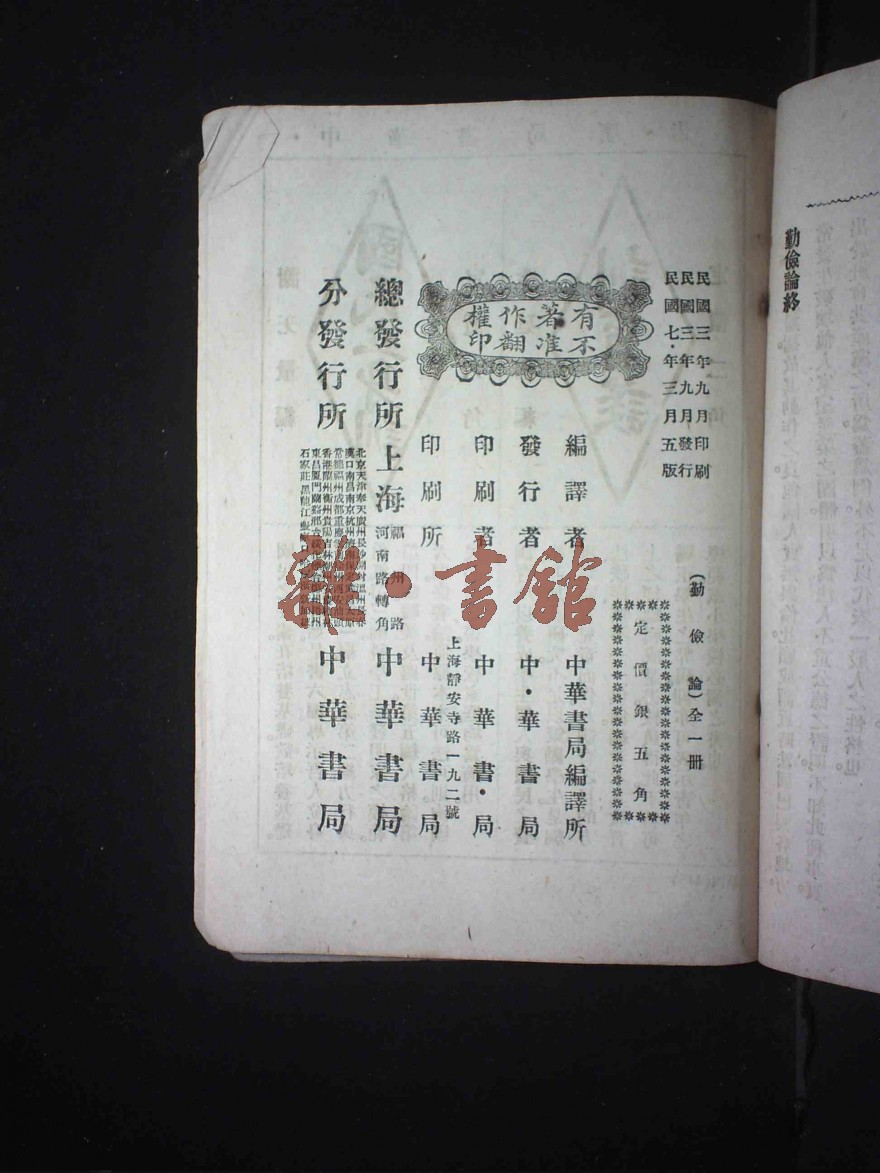 勤儉論終
民國三年九月印刷
民國三年九月發行
民國七年三月五版
(勤儉論)全一冊
定價銀五角
有著作權
不准翻印
編譯者 中華書局編譯所
發行者 中華書局
印刷者 中華書局
上海靜安寺路一九二號
印刷所 中華書局
總發行所 上海 福州路 河南路轉角 中華書局
分發行所
北京天津奉天廣州長沙
漢口南昌南京杭州
常德福州成都重慶
香港 衡州貴陽吉林
東昌廈門蘭谿
石家莊黑龍江
中華書局
雜·書館